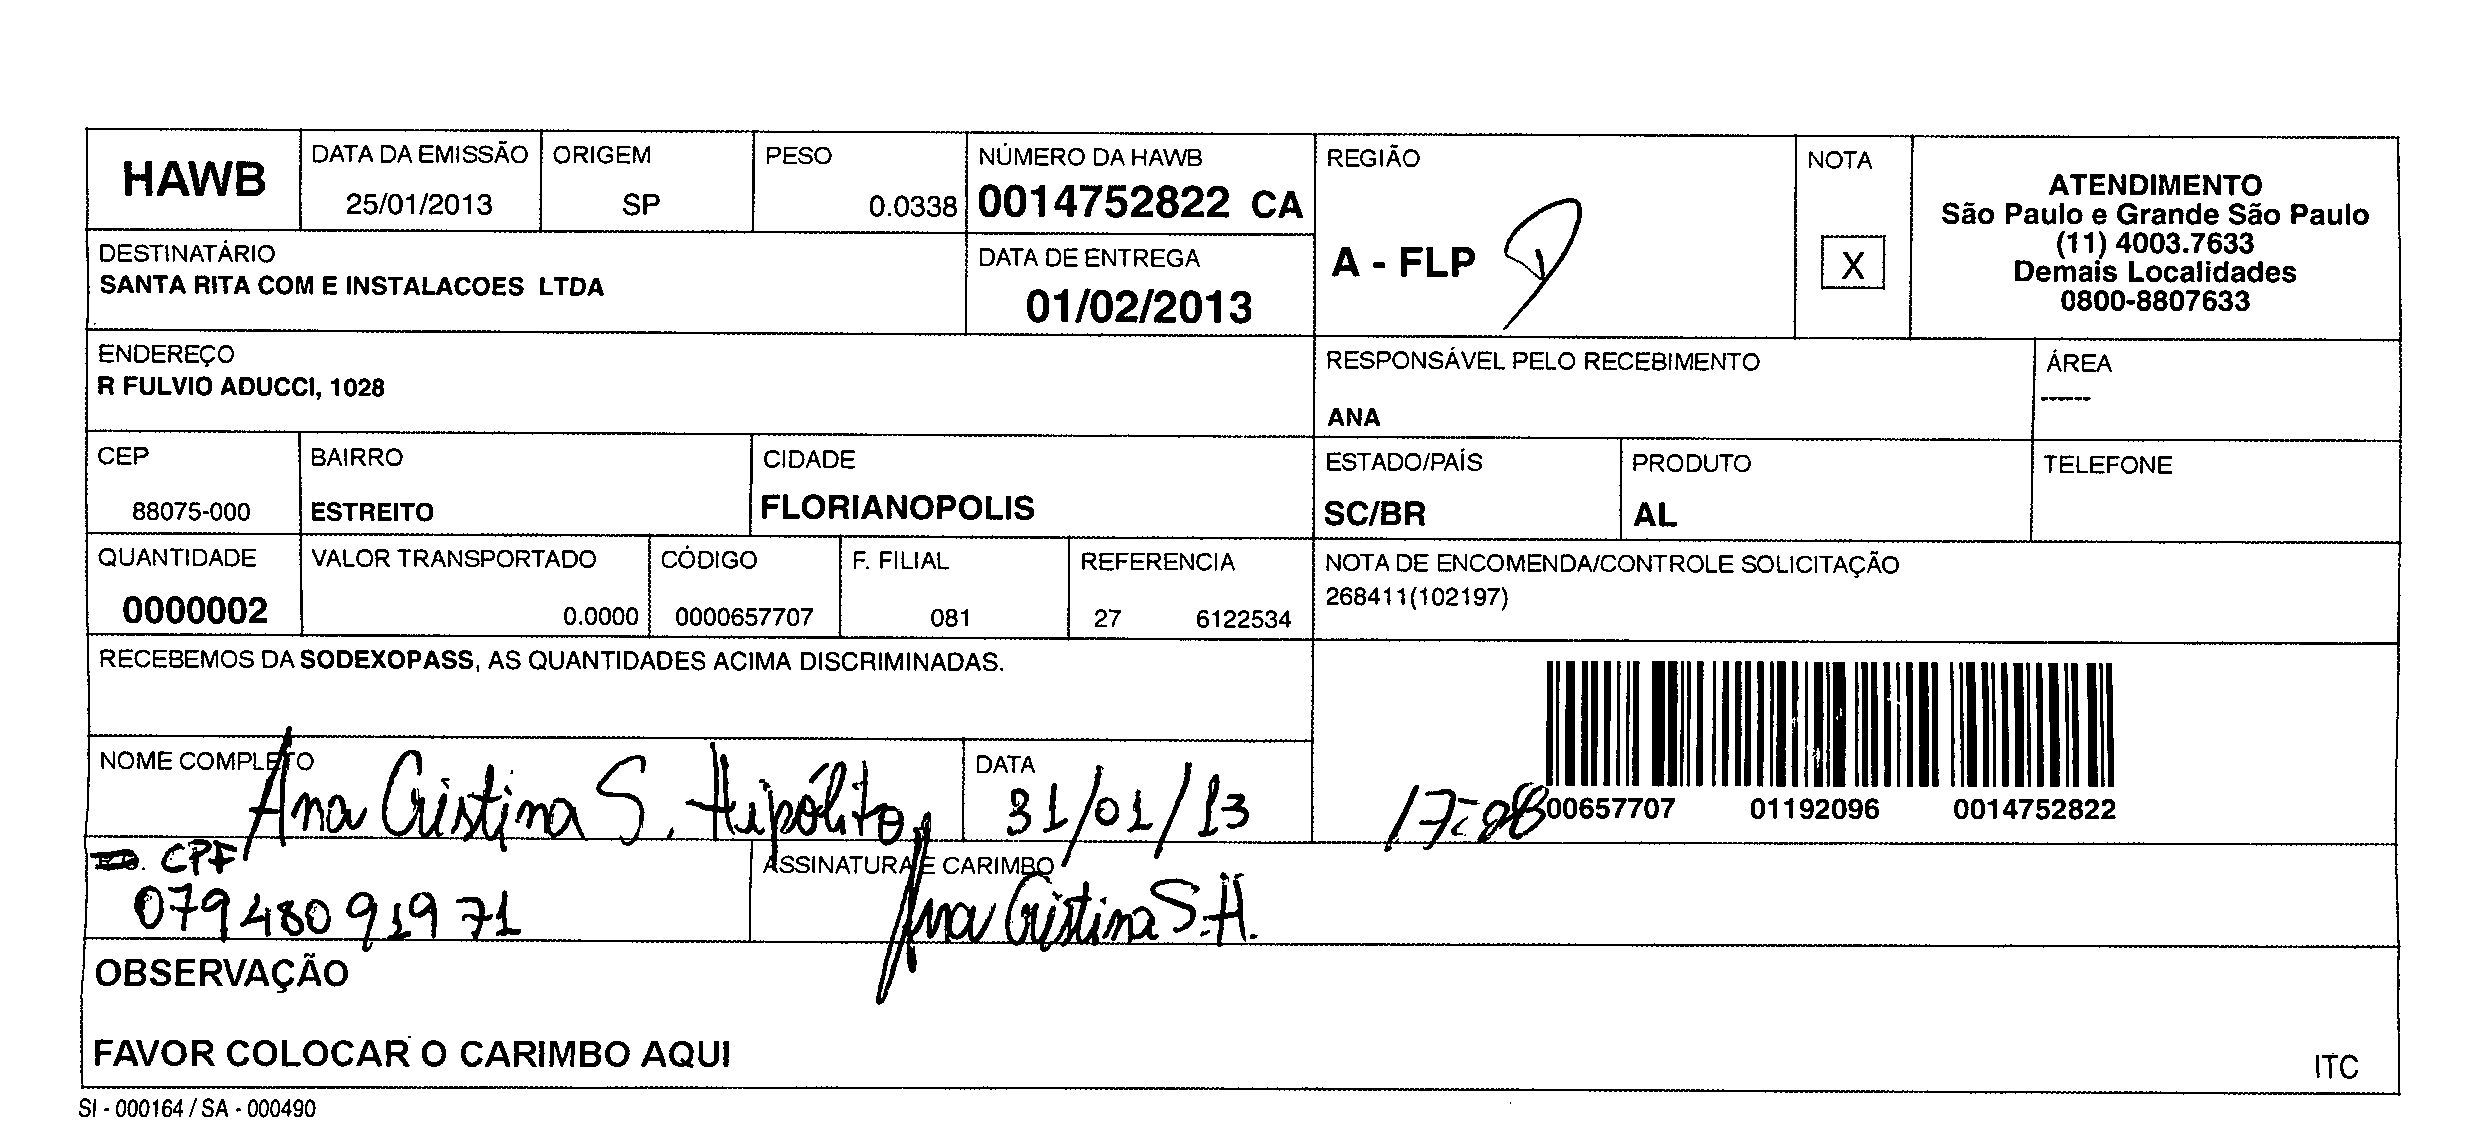 HAWB
DATA DA EMISSÃO
25/01/2013
ORIGEM
SP
PESO
0.0338
NÚMERO DA HAWB
0014752822 CA
REGIÃO
A - FLP
NOTA
X
ATENDIMENTO
São Paulo e Grande São Paulo
(11) 4003.7633
Demais Localidades
0800-8807633
DESTINATÁRIO
SANTA RITA COM E INSTALACOES LTDA
DATA DE ENTREGA
01/02/2013
ENDEREÇO
R FULVIO ADUCCI, 1028
RESPONSÁVEL PELO RECEBIMENTO
ANA
ÁREA
------
CEP
88075-000
BAIRRO
ESTREITO
CIDADE
FLORIANOPOLIS
ESTADO/PAÍS
SC/BR
PRODUTO
AL
TELEFONE
QUANTIDADE
0000002
VALOR TRANSPORTADO
0.0000
CÓDIGO
0000657707
F. FILIAL
081
REFERENCIA
27 6122534
NOTA DE ENCOMENDA/CONTROLE SOLICITAÇÃO
268411(102197)
RECEBEMOS DA SODEXOPASS, AS QUANTIDADES ACIMA DISCRIMINADAS.
NOME COMPLETO
Ana Cristina S. Hipólito
DATA
31/01/13
00657707 01192096 0014752822
CPF
079480919 71
ASSINATURA E CARIMBO
Ana Cristina S.H.
OBSERVAÇÃO
FAVOR COLOCAR O CARIMBO AQUI
ITC
SI - 000164 / SA - 000490